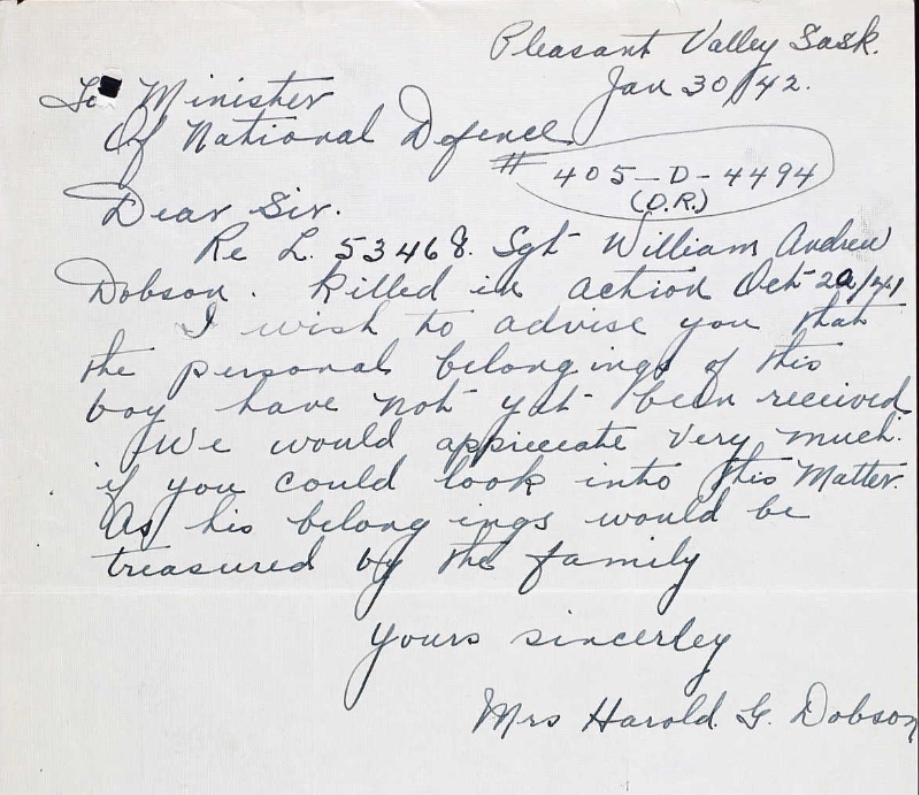 Pleasant Valley Sask.
Jan 30/42.
To Minister
Of National Defence
# 405-D-4494
(D.R.)
Dear Sir.
Re L. 53468. Sgt William Andrew
Dobson. Killed in action Oct 20/41
I wish to advise you that
the personal belongings of this
boy have not yet been received
We would appreciate very much.
if you could look into this Matter.
As his belongings would be
treasured by the family
Yours sincerley
Mrs Harold G. Dobson